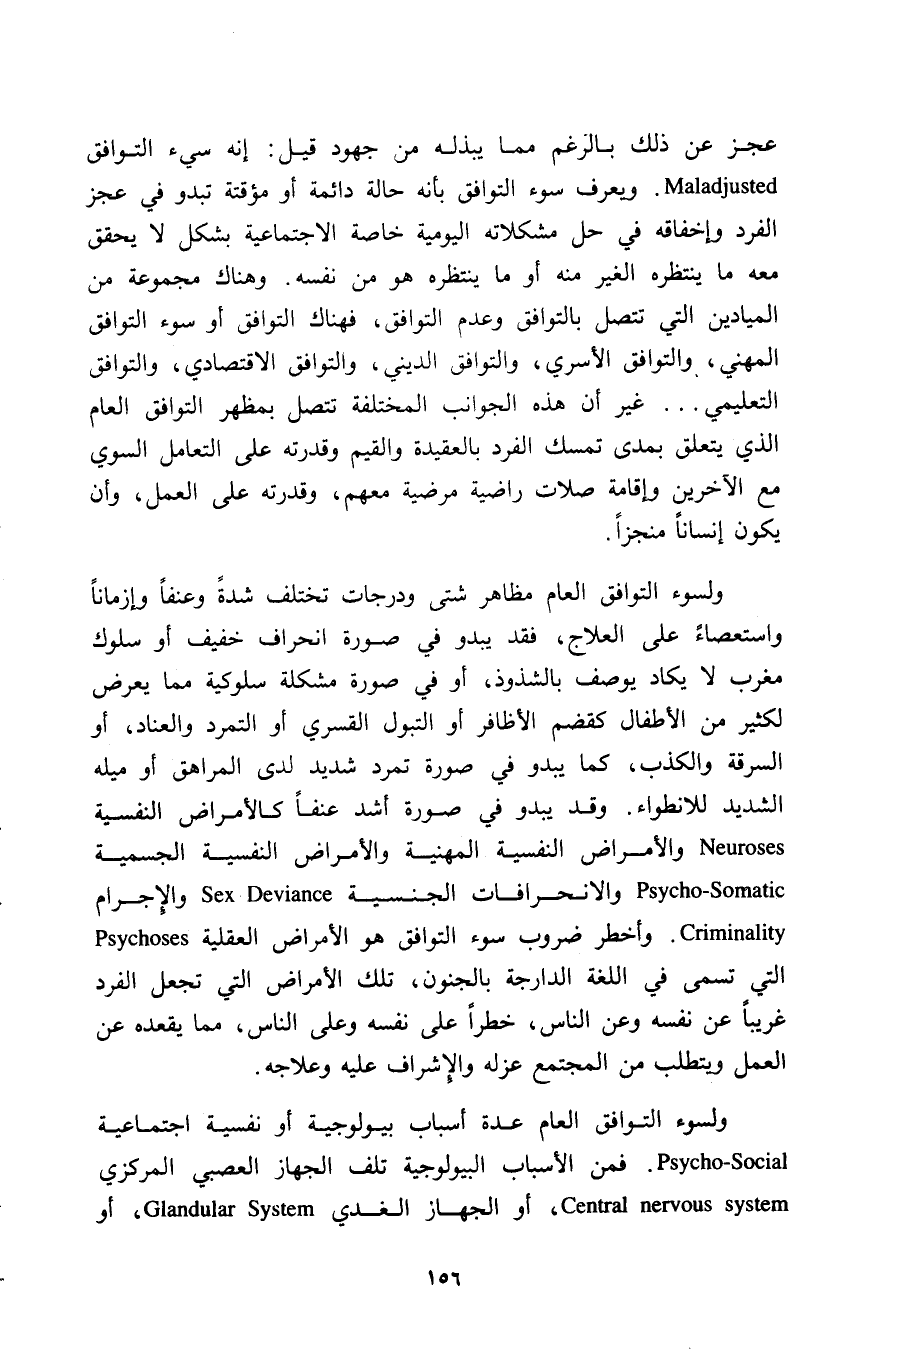 عجز عن ذلك بالرغم مما يبذله من جهود قيل: إنه سيء التوافق
Maladjusted. ويعرف سوء التوافق بأنه حالة دائمة أو مؤقتة تبدو في عجز
الفرد وإخفاقه في حل مشكلاته اليومية خاصة الاجتماعية بشكل لا يحقق
معه ما ينتظره الغير منه أو ما ينتظره هو من نفسه. وهناك مجموعة من
الميادين التي تتصل بالتوافق وعدم التوافق، فهناك التوافق أو سوء التوافق
المهني، والتوافق الأسري، والتوافق الديني، والتوافق الاقتصادي، والتوافق
التعليمي... غير أن هذه الجوانب المختلفة تتصل بمظهر التوافق العام
الذي يتعلق بمدى تمسك الفرد بالعقيدة والقيم وقدرته على التعامل السوي
مع الآخرين وإقامة صلات راضية مرضية معهم، وقدرته على العمل، وأن
يكون إنساناً منجزاً.
ولسوء التوافق العام مظاهر شتى ودرجات تختلف شدةً وعنفاً وإزماناً
واستعصاءً على العلاج، فقد يبدو في صورة انحراف خفيف أو سلوك
مغرب لا يكاد يوصف بالشذوذ، أو في صورة مشكلة سلوكية مما يعرض
لكثير من الأطفال كقضم الأظافر أو التبول القسري أو التمرد والعناد، أو
السرقة والكذب، كما يبدو في صورة تمرد شديد لدى المراهق أو ميله
الشديد للانطواء. وقد يبدو في صورة أشد عنفاً كالأمراض النفسية
Neuroses والأمراض النفسية المهنية والأمراض النفسية الجسمية
Psycho-Somatic والانحرافات الجنسية Sex Deviance والإجرام
Criminality. وأخطر ضروب سوء التوافق هو الأمراض العقلية Psychoses
التي تسمى في اللغة الدارجة بالجنون، تلك الأمراض التي تجعل الفرد
غريباً عن نفسه وعن الناس، خطراً على نفسه وعلى الناس، مما يقعده عن
العمل ويتطلب من المجتمع عزله والإشراف عليه وعلاجه.
ولسوء التوافق العام عدة أسباب بيولوجية أو نفسية اجتماعية
Psycho-Social. فمن الأسباب البيولوجية تلف الجهاز العصبي المركزي
Central nervous system، أو الجهاز الغدي Glandular System، أو
١٥٦